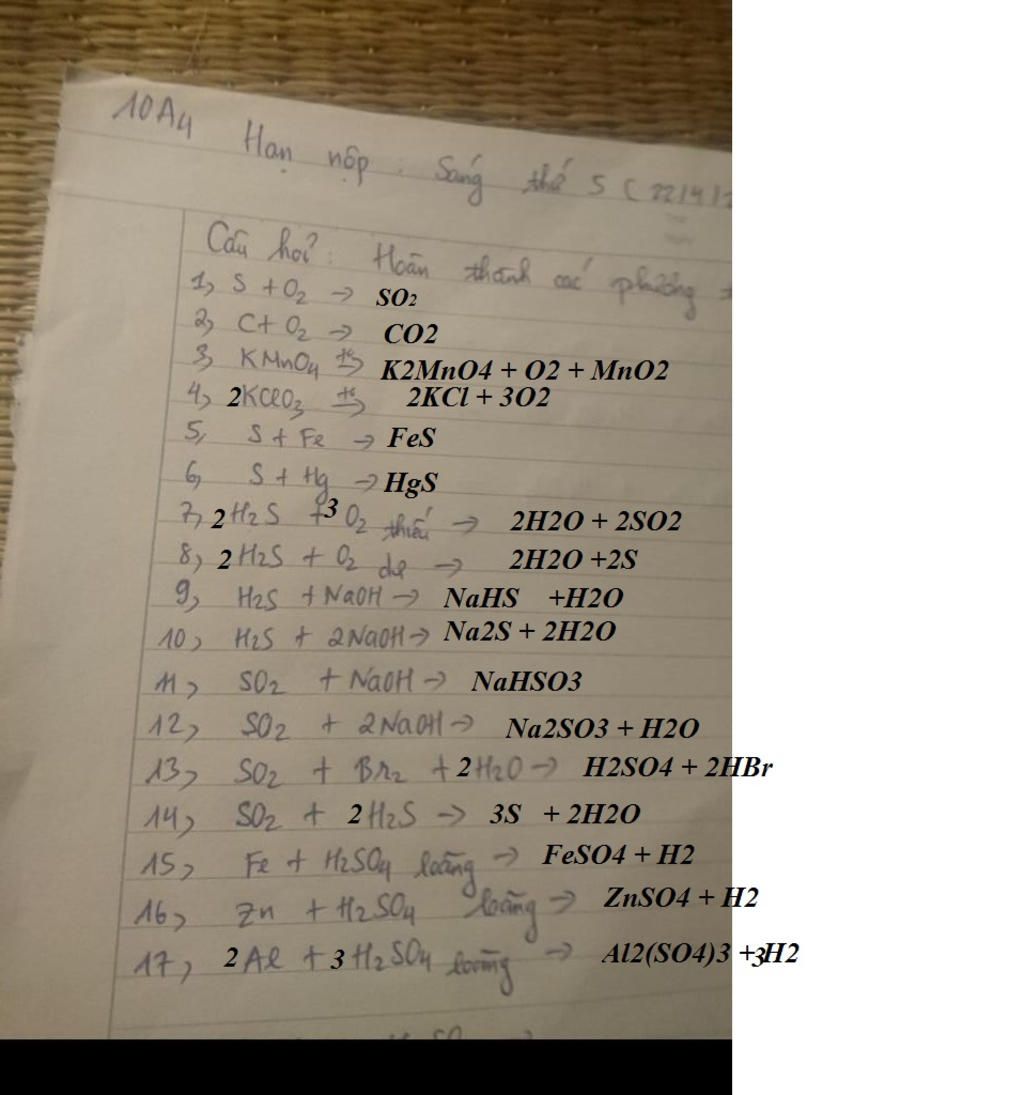 10A4 Hạn nộp: Sáng thứ 5 (22/4/
Câu hỏi: Hoàn thành các phương
1, S + O2 → SO2
2, C + O2 → CO2
3, KMnO4 t° → K2MnO4 + O2 + MnO2
4, 2KClO3 t° → 2KCl + 3O2
5, S + Fe → FeS
6, S + Hg → HgS
7, 2H2S + 3O2 thiếu → 2H2O + 2SO2
8, 2H2S + O2 dư → 2H2O +2S
9, H2S + NaOH → NaHS +H2O
10, H2S + 2NaOH → Na2S + 2H2O
11, SO2 + NaOH → NaHSO3
12, SO2 + 2NaOH → Na2SO3 + H2O
13, SO2 + Br2 + 2H2O → H2SO4 + 2HBr
14, SO2 + 2H2S → 3S + 2H2O
15, Fe + H2SO4 loãng → FeSO4 + H2
16, Zn + H2SO4 loãng → ZnSO4 + H2
17, 2Al + 3H2SO4 loãng → Al2(SO4)3 +3H2